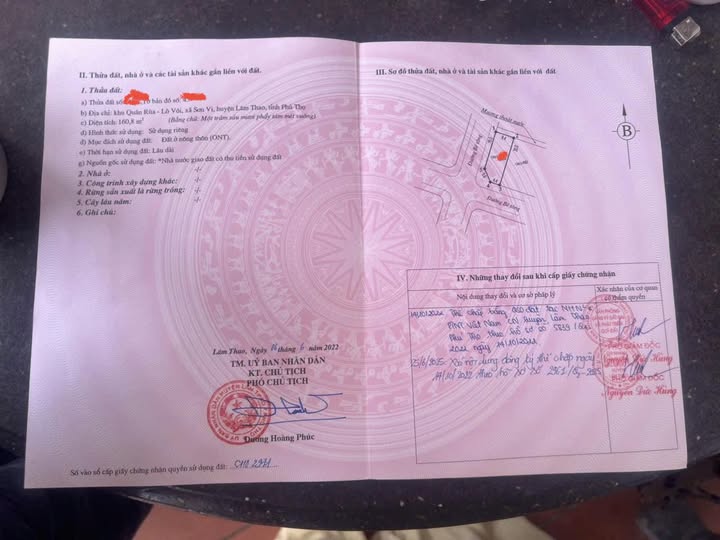 II. Thửa đất, nhà ở và các tài sản khác gắn liền với đất.
1. Thửa đất:
a) Thửa đất số: tờ bản đồ số:
b) Địa chỉ: khu Quán Rita - Lò Vôi, xã Sơn Vi, huyện Lâm Thao, tỉnh Phú Thọ
c) Diện tích: 160,8 m² (Bằng chữ: Một trăm sáu mươi phẩy tám mét vuông)
d) Hình thức sử dụng: Sử dụng riêng
đ) Mục đích sử dụng: Đất ở nông thôn (ONT).
e) Thời hạn sử dụng đất: Lâu dài
g) Nguồn gốc sử dụng đất: *Nhà nước giao đất có thu tiền sử dụng đất
2. Nhà ở: -/-
3. Công trình xây dựng khác: -/-
4. Rừng sản xuất là rừng trồng: -/-
5. Cây lâu năm: -/-
6. Ghi chú:
Lâm Thao, Ngày 6 2022
TM. UỶ BAN NHÂN DÂN
KT. CHỦ TỊCH
PHÓ CHỦ TỊCH
Dương Hoàng Phúc
Số vào sổ cấp giấy chứng nhận quyền sử dụng đất: CH 2971
III. Sơ đồ thửa đất, nhà ở và tài sản khác gắn liền với đất
B
Mương thoát nước
Đường Bê tông
Đường Bê tông
IV. Những thay đổi sau khi cấp giấy chứng nhận
Nội dung thay đổi và cơ sở pháp lý
Xác nhận của cơ quan có thẩm quyền
14/10/2022 Thế chấp bằng QSD đất tại NHN
PTNT Việt Nam CN Huyện Lâm Thao
Phú Thọ theo hồ sơ số
ngày 14/10/2022
PHÓ GIÁM ĐỐC
Nguyễn Đức Hưng
25/6/2025 Xóa nội dung đăng ký thế chấp ngày
14/10/2022 theo hồ sơ số
PHÓ GIÁM ĐỐC
Nguyễn Đức Hưng